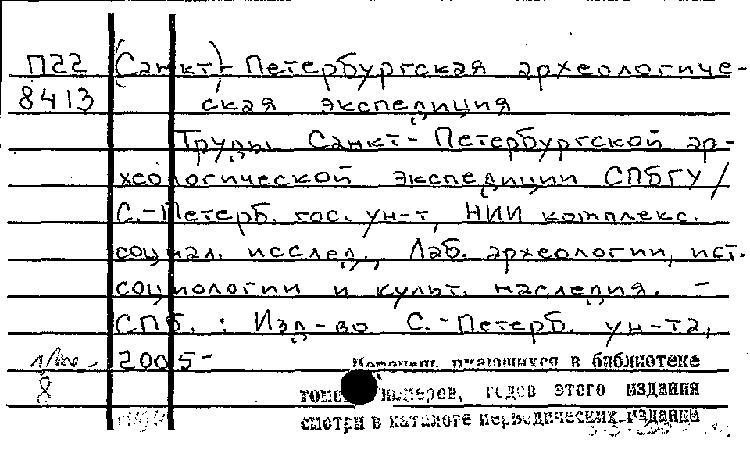 П22 (Санкт)-Петербургская археологиче-
8413 ская экспедиция
Труды Санкт-Петербургской ар-
хеологической экспедиции СПБГУ /
С.-Петерб. гос. ун-т, НИИ комплекс.
социал. исслед., Лаб. археологии, ист.
социологии и культ. наследия. -
СПб. : Изд-во С.-Петерб. ун-та,
2005-
имеющихся в библиотеке
8 томов, номеров, годов этого издания
смотри в каталоге периодических изданий